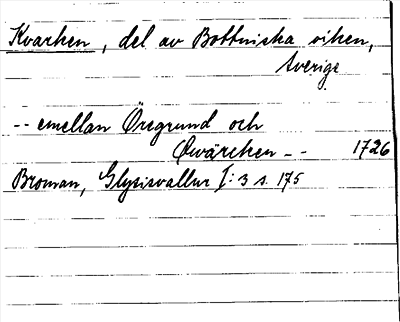 Kvarken, del av Bottniska viken,
Sverige
-- emellan Öregrund och
Qwärcken -- 1726
Broman, Glysisvallur I: 3 s. 175